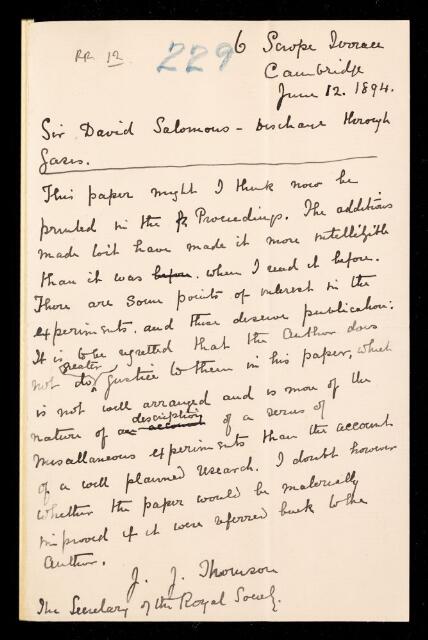 RR 12
229
6 Scrope Terrace
Cambridge
June 12. 1894.
Sir David Salomons - Discharge through
Gases.
This paper might I think now be
printed in the Proceedings. The additions
made to it have made it more intelligible
than it was before. when I read it before.
There are some points of interest in the
experiments. and these deserve publication.
It is to be regretted that the Author does
not do greater justice to them in his paper, which
is not well arranged and is more of the
nature of an account description of a series of
miscellaneous experiments than the account
of a well planned research. I doubt however
whether the paper would be materially
improved if it were referred back to the
Author.
J. J. Thomson
The Secretary of the Royal Society.